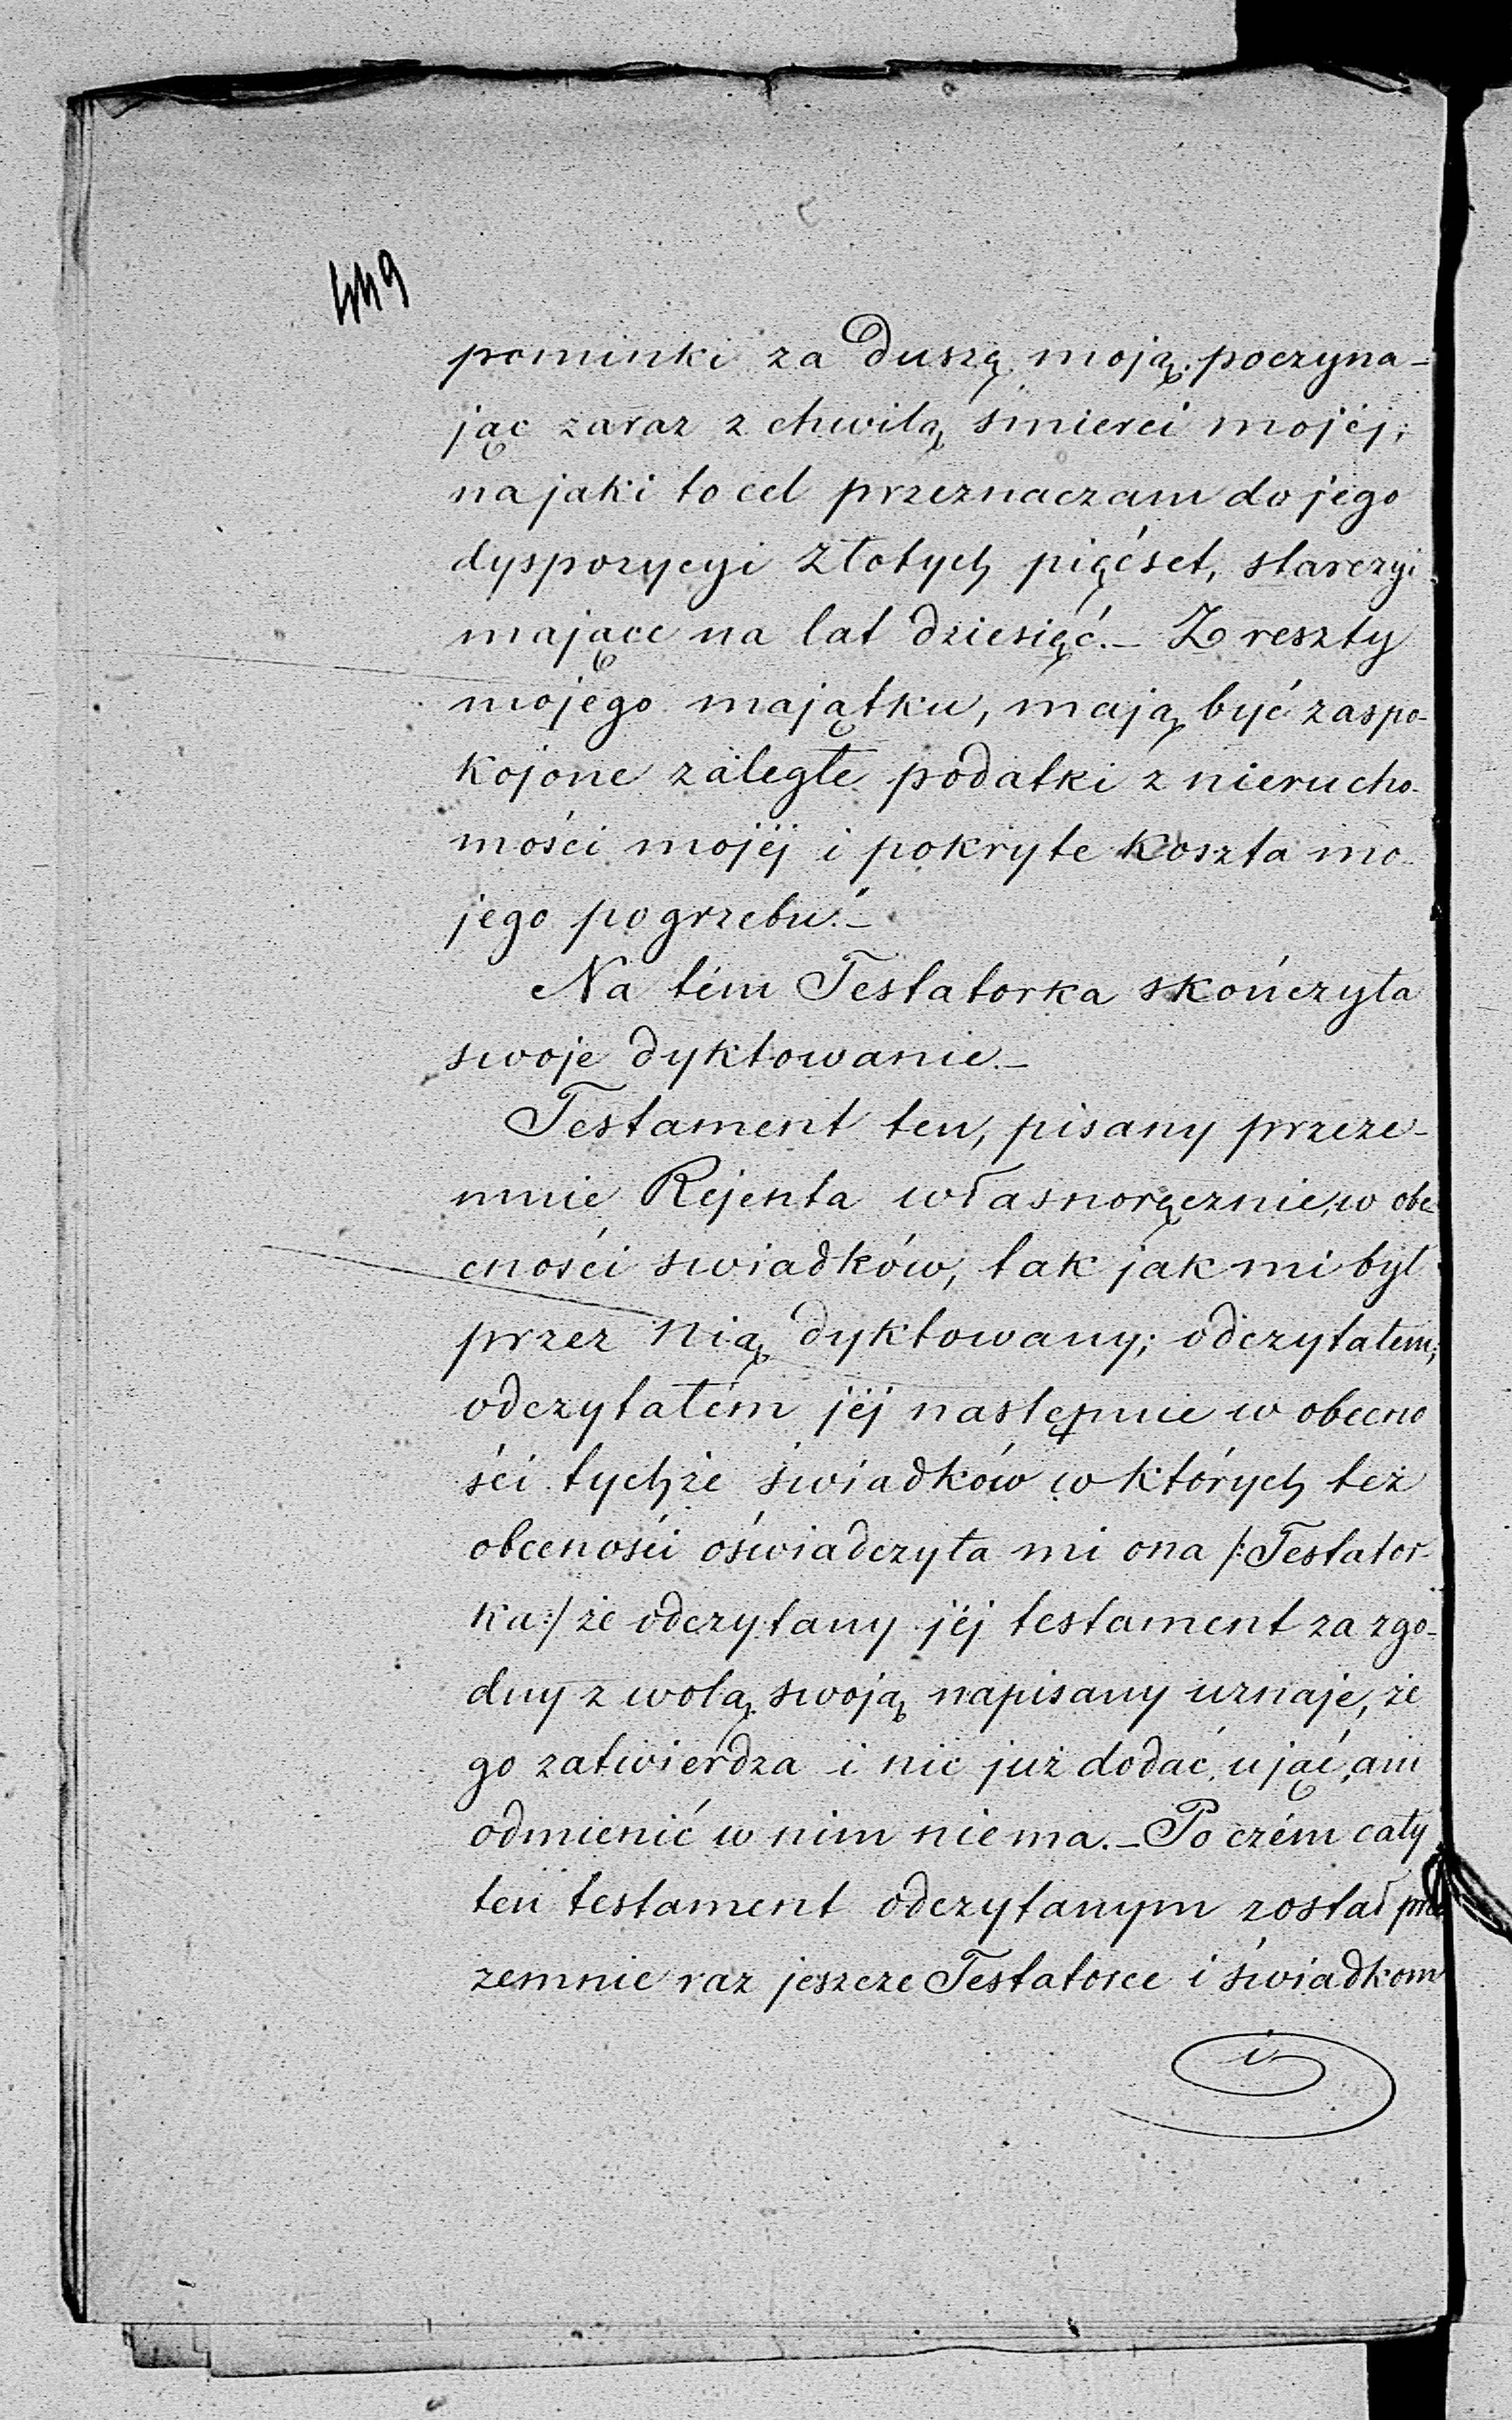 449
pominki za Duszę moją; poczyna-
jąc zaraz z chwilą śmierci mojéj;
na jaki to cel przeznaczam do jego
dyspozycyi Złotych pięćset, starczyć
mające na lat dziesięć.— Z reszty
mojego majątku, mają być zaspo-
kojone zaległe podatki z nierucho-
mości mojéj i pokryte koszta mo-
jego pogrzebu."—
Na tém Testatorka skończyła
swoje dyktowanie.—
Testament ten, pisany przeze-
mnie Rejenta własnoręcznie, w obe-
cności świadków, tak jak mi był
przez nią dyktowany; odczytałem;
odczytałem jéj następnie w obecno
ści tychże świadków w których też
obecności oświadczyła mi ona /:Testator-
ka:/ że odczytany jéj testament za zgo-
dny z wolą swoją napisany uznaje, że
go zatwierdza i nic już dodać, ująć, ani
odmienić w nim niema.— Po czém cały
ten testament odczytanym został prze
zemnie raz jeszcze Testatorce i świadkom
i